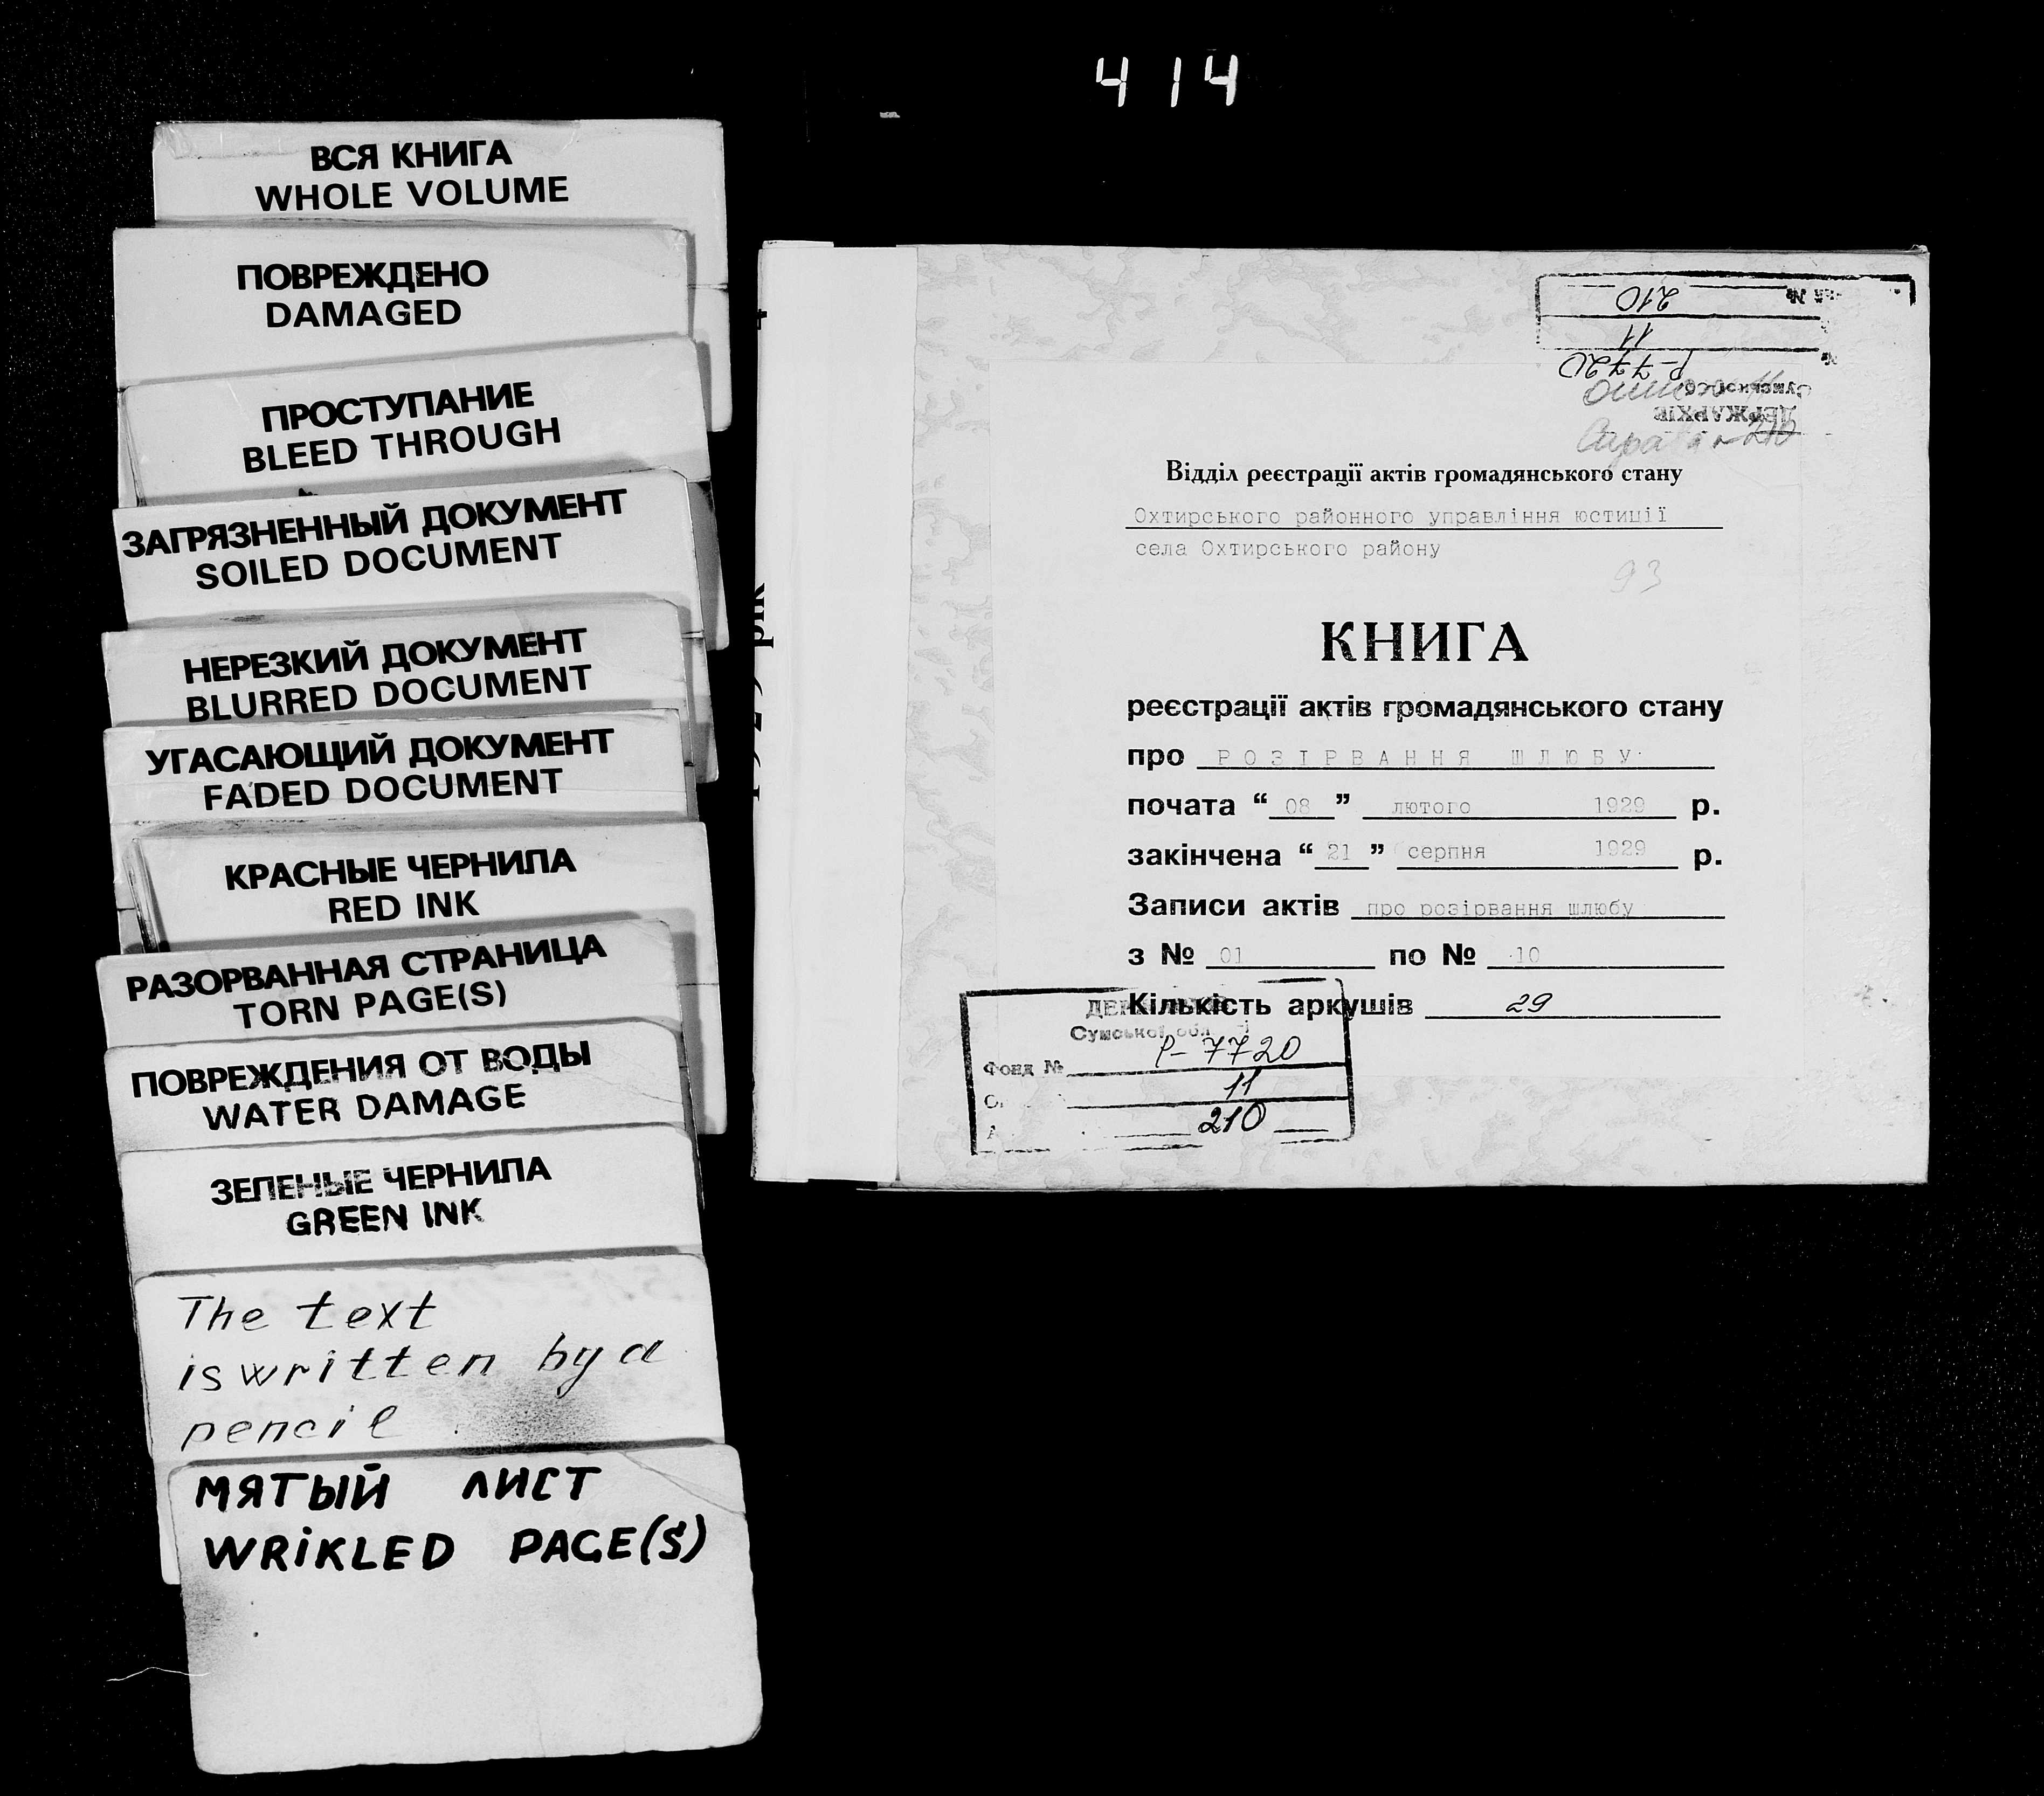 414
ВСЯ КНИГА
WHOLE VOLUME
ПОВРЕЖДЕНО
DAMAGED
ПРОСТУПАНИЕ
BLEED THROUGH
ЗАГРЯЗНЕННЫЙ ДОКУМЕНТ
SOILED DOCUMENT
НЕРЕЗКИЙ ДОКУМЕНТ
BLURRED DOCUMENT
УГАСАЮЩИЙ ДОКУМЕНТ
FADED DOCUMENT
КРАСНЫЕ ЧЕРНИЛА
RED INK
РАЗОРВАННАЯ СТРАНИЦА
TORN PAGE(S)
ПОВРЕЖДЕНИЯ ОТ ВОДЫ
WATER DAMAGE
ЗЕЛЕНЫЕ ЧЕРНИЛА
GREEN INK
The text
is written by a
pencil
МЯТЫЙ ЛИСТ
WRIKLED PAGE(S)
ДЕРЖАРХІВ
Р-7720
11
210
Відділ реєстрації актів громадянського стану
Охтирського районного управління юстиції
села Охтирського району
93
КНИГА
реєстрації актів громадянського стану
про РОЗІРВАННЯ ШЛЮБУ
почата “08” лютого 1929 р.
закінчена “21” серпня 1929 р.
Записи актів про розірвання шлюбу
з № 01 по № 10
Кількість аркушів 29
Сумської
Фонд № Р-7720
11
210